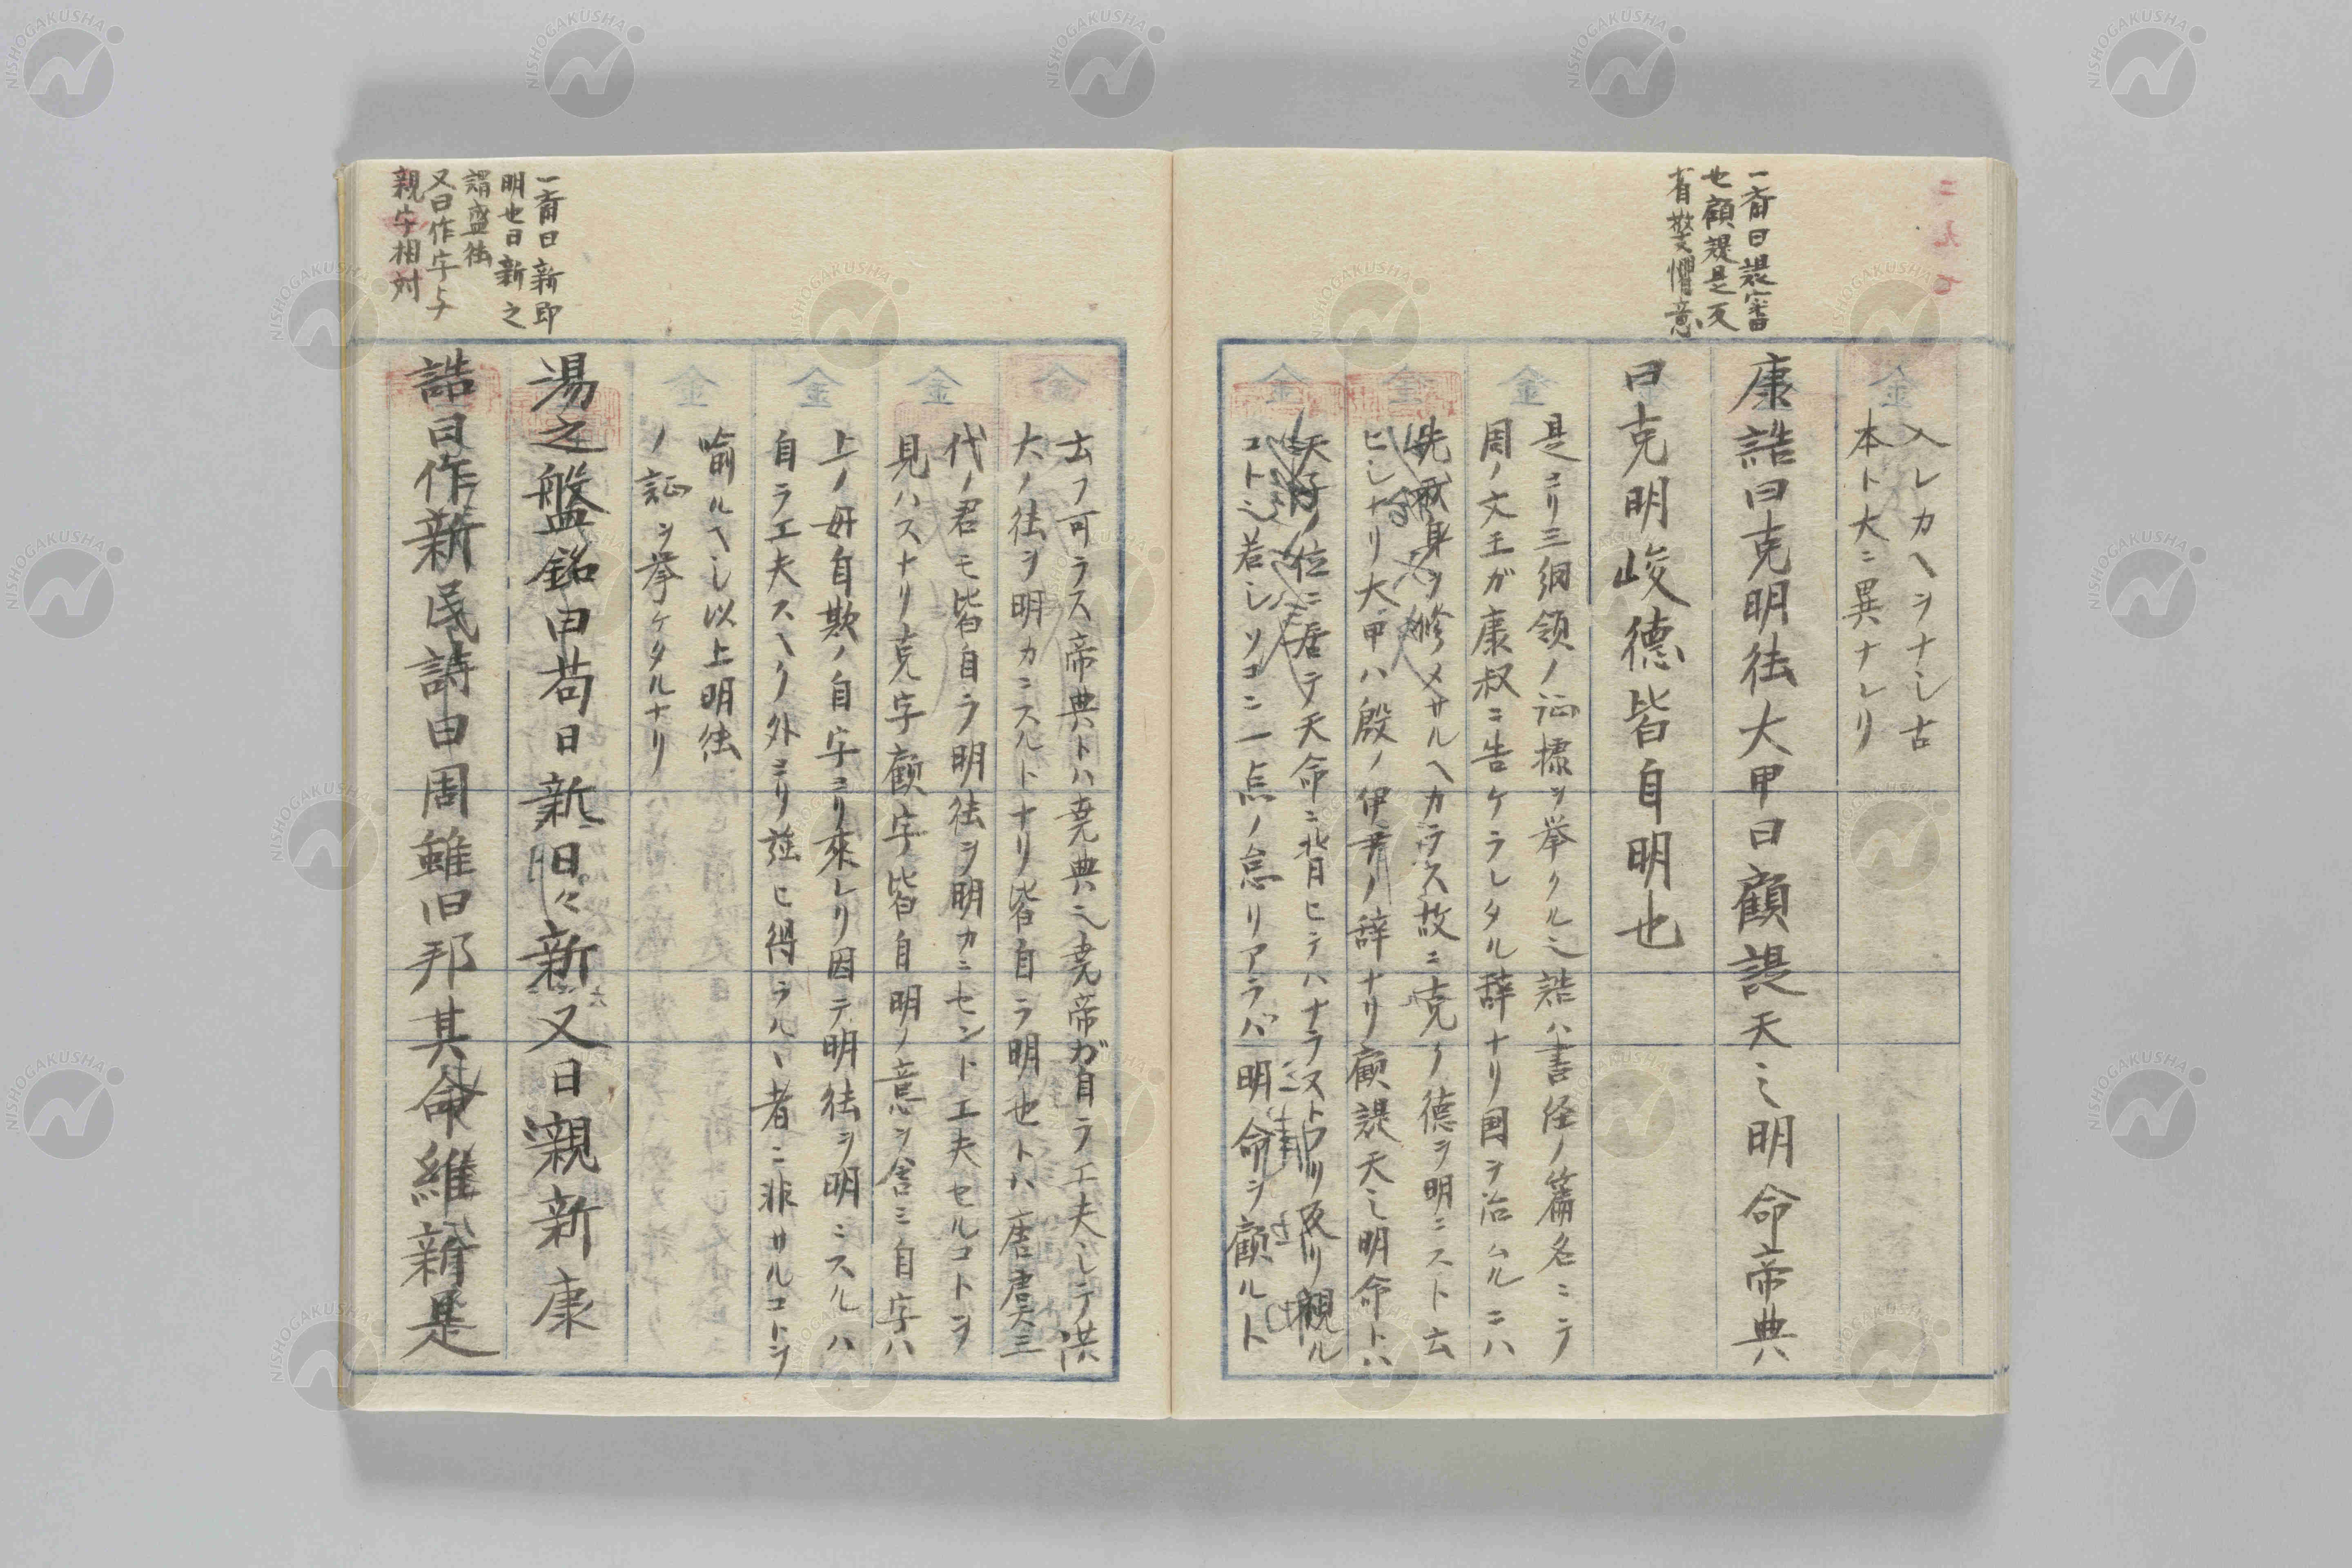 一斎曰諟審
也顧諟是反
省警懼意
入レカヘヲナシ古
本ト大ニ異ナレリ
康誥曰克明徳大甲曰顧諟天之明命帝典
曰克明峻德皆自明也
是ヨリ三綱領ノ証據ヲ挙クル也誥ハ書経ノ篇名ニテ
周ノ文王ガ康叔ニ告ケラレタル辞ナリ国ヲ治ムルニハ
先身ヲ修メサルヘカラス故ニ克ク德ヲ明ニスト云
ヒシナリ大甲ハ殷ノ伊尹ノ辞ナリ顧諟天之明命トハ
天子ノ位ニ居テ天命ニ背ヒテハナラストフリ反リ親ル
コト也若シソコニ一点ノ怠リアラバ明命ヲ顧ルト
一斎曰新即
明也日新之
謂盛徳
又曰作字与
親字相対
云フ可ラス帝典トハ堯典也堯帝ガ自ラ工夫シテ洪
大ノ徳ヲ明カニスルトナリ皆自ラ明也トハ唐虞三
代ノ君モ皆自ラ明徳ヲ明カニセント工夫セルコトヲ
見ハスナリ克字顧字皆自明ノ意ヲ含ミ自字ハ
上ノ毋自欺ノ自字ヨリ來レリ因テ明徳ヲ明ニスルハ
自ラ工夫スヘク外ヨリ強ヒ得ラルヽ者ニ非サルコトヲ
喩ルヘシ以上明徳
ノ証ヲ挙ケタルナリ
湯之盤銘曰苟日新日々新又日親新康
誥曰作新民詩曰周雖旧邦其命維新是